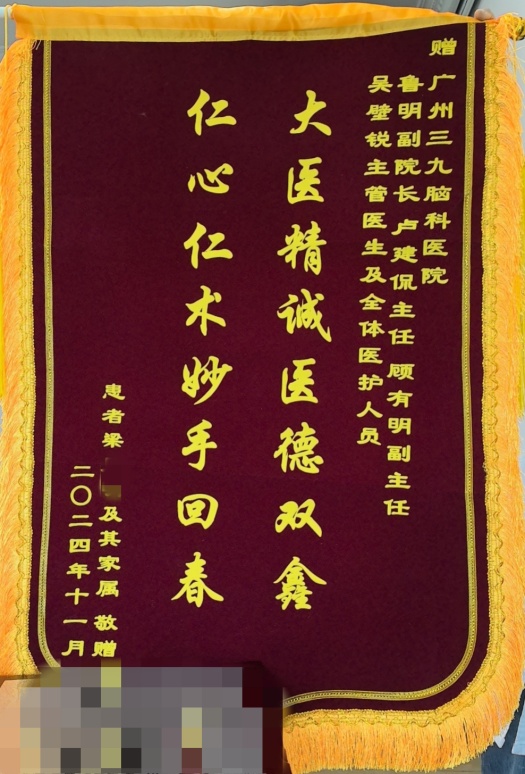 赠
广州三九脑科医院
鲁明副院长 卢建侃主任 顾有明副主任
吴壁锐主管医生及全体医护人员
大医精诚医德双鑫
仁心仁术妙手回春
患者梁 及其家属 敬赠
二〇二四年十一月